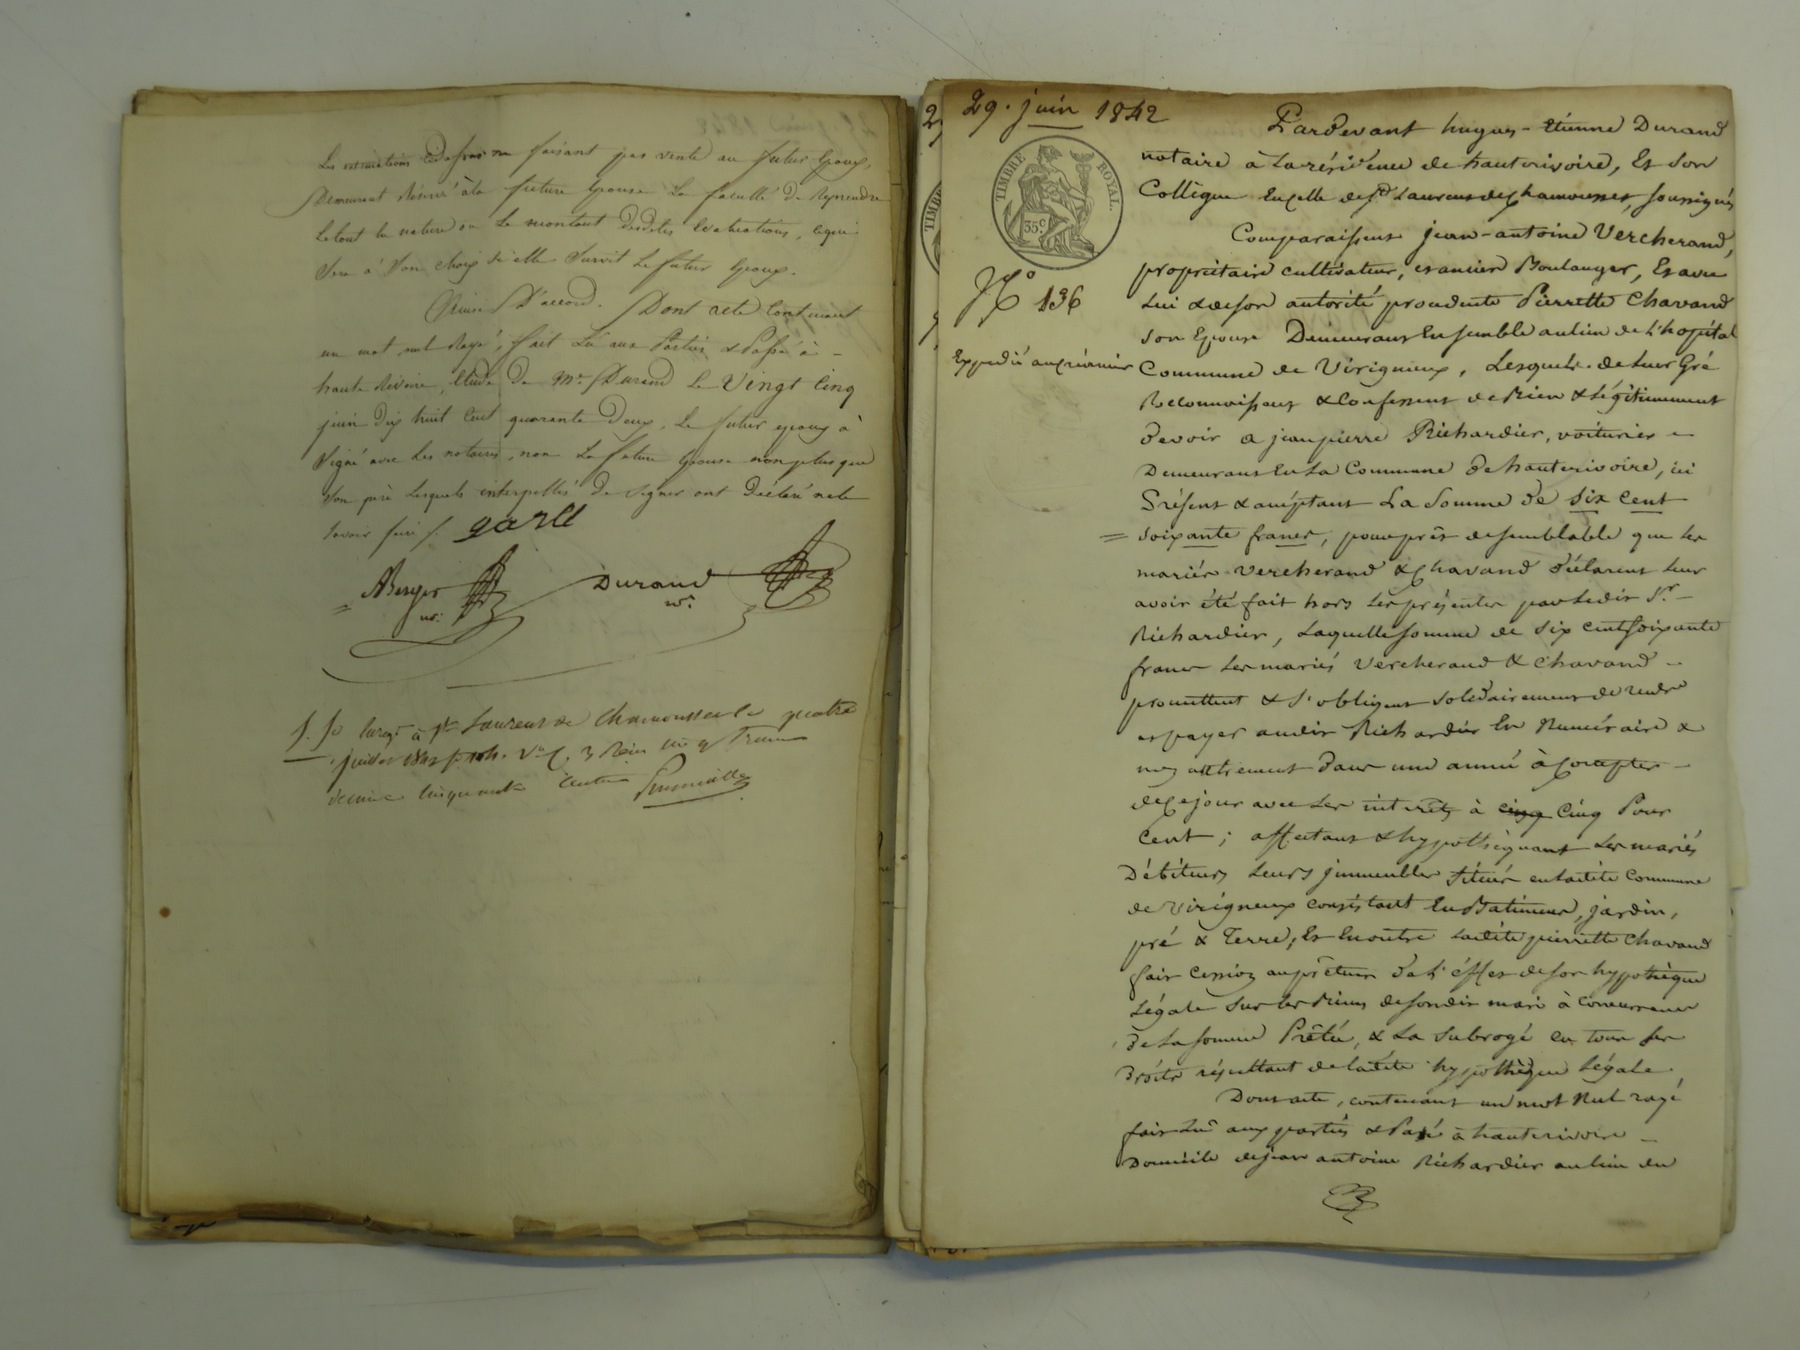 Les estimations ne faisant pas vente au futur Epoux,
Demeurant Réservé à la future Epouse La faculté de Reprendre
Le tout en nature ou Le montant desdites Evaluations, ce qui
Sera à Son choix Si elle Survit Le futur Epoux.
Ainsi D'accord. Dont acte Contenant
un mot nul Rayé, fait Lu aux Parties & Passé à -
haute Rivoire, Etude De Me Durand Le Vingt Cinq
juin Dix huit Cent quarante Deux, Le futur epoux à
Signé avec Les notaires, non La future Epouse non plus que
Son père Lesquels interpellés De Signer ont Déclaré ne le
Savoir faire /.
Berger
nre
Durand
nre
à St Laurent de Chamousset le quatre
juillet 1842
décime cinquante
29. juin 1842
TIMBRE ROYAL.
35c
No 136
Expedié au créancier
Pardevant hugues-Etienne Durand
notaire à La résidence de hauterivoire, Et Son
Collègue En celle de St Laurent de chamousset, Soussignés
Comparaissent jean-antoine Vercherand,
propriétaire cultivateur, et ancien Boulanger, Et avec
Lui & de son autorité procédente Pierrette Chavand
Son Epouse Demeurant Ensemble au lieu de L'hopital
Commune de Virigneux, Lesquels de Leur Gré
Reconnoissent & Confessent de Bien & Légitimement
devoir a jean pierre Richardier, voiturier -
Demeurant En La Commune De hauterivoire, ici
Présent & acceptant La Somme De Six Cent
= Soixante francs, pour prêt de semblable que les
mariés Vercherand & Chavand déclarent leur
avoir été fait hors Les présentes par Ledit Sr -
Richardier, Laquelle Somme de Six Cent Soixante
francs Les mariés Vercherand & Chavand -
promettent & S'obligent Solidairement de rendre
et payer audit Richardier En Numéraire &
non autrement Dans une année à Compter -
de Ce jour avec Les interêts à cinq Cinq Pour
Cent; affectant & hypothéquant Les mariés
Débiteurs Leurs jmmeubles Situés en Ladite Commune
de Virigneux consistant En Batiment, jardin,
pré & Terre; Et En outre Ladite pierrette Chavand
fait Cession au prêteur De L'éffet de son hypothèque
Légale Sur Les Biens de Son dit mari à Concurrence
De La Somme Prêtée, & La Subrogé en tous Ses
Droits résultant de Ladite hypothèque Légale.
Dont acte, contenant un mot Nul rayé
fait Lu aux parties & Passé à hauterivoire -
Domicile de jean antoine Richardier au lieu du